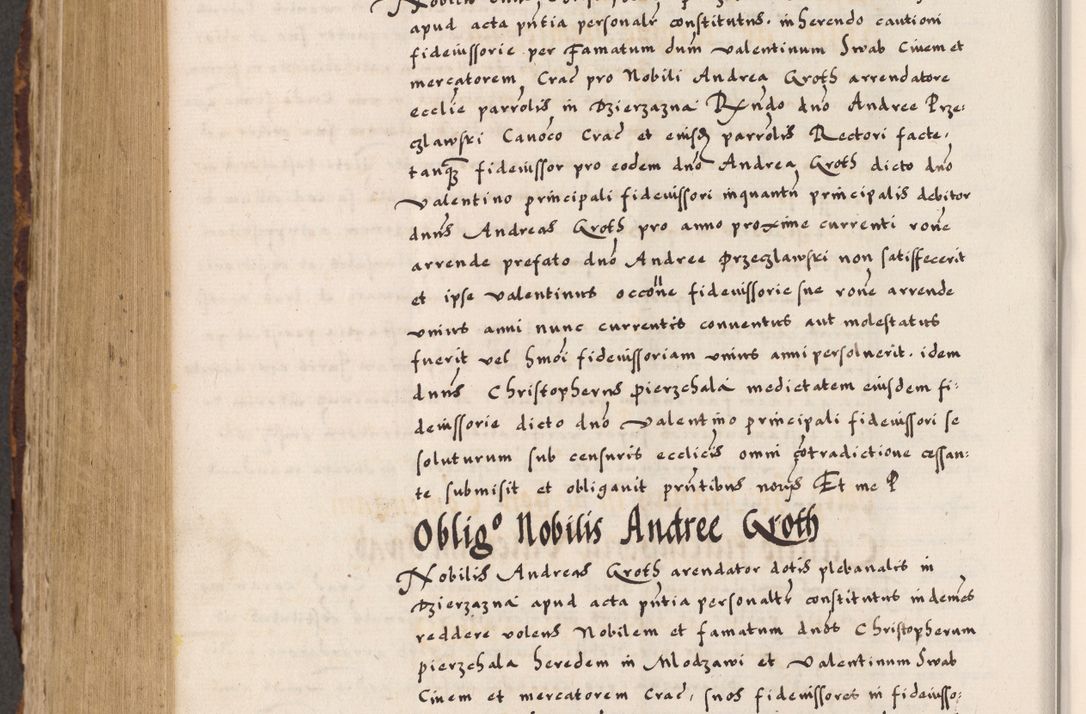 apud acta pñtia personalr constitutus. inherendo cautioni
fideiussorie per Famatum dum valentinum Swab Ciuem et
mercatorem Crac̃ pro Nobili Andrea Groth arrendatore
ecclie parrolis in Dzierzazna Rndo dno Andree Prze:
czlawski Canoco Crac̃ et eiusd parrolis Rectori facte,
tanq fideiussor pro eodem dno Andrea Groth dicto dno
valentino principali fideiussori inquantu principalis debitor
dnus Andreas Groth pro anno proxime currenti rone
arrende prefato dno Andree Przeczlawski non satisfecerit
et ipse valentinus occone fideiussorie sue rone arrende
unius anni nunc currentis conuentus aut molestatus
fuerit vel hmoi fideiussoriam unius anni persoluerit. idem
dnus Christopherus pierzchala medietatem eiusdem fi:
deiussorie dicto dno valentino principali fideiussori se
soluturum sub censuris ecclicis omni cotradictione cessan:
te submisit et obligauit pntibus Et me
Obligo Nobilis Andree Groth
Nobilis Andreas Groth arendator dotis plebanalis in
Dzierzazna apud acta pñtia personaltr constitutus indemes
reddere volens Nobilem et famatum dnos Christopherum
pierzchala heredem in Mlodzawi et valentinum Swab
Ciuem et mercatorem Crac̃, suos fideiussores in fideiusso: